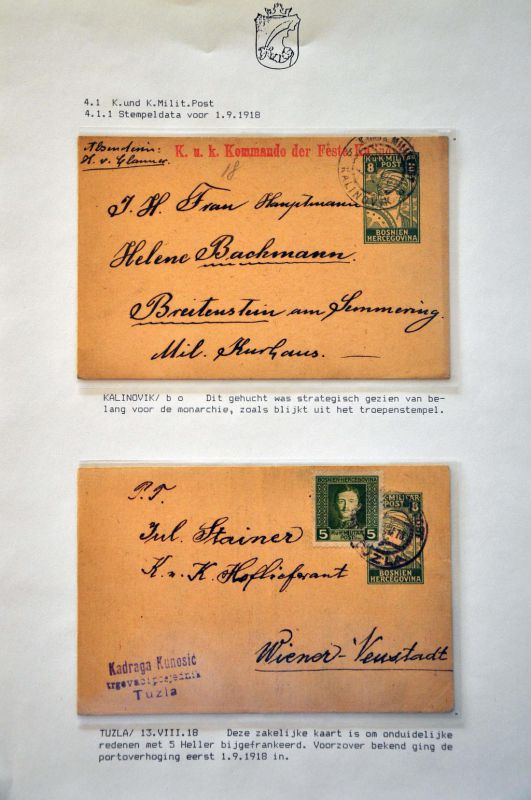 4.1 K.und K.Milit.Post
4.1.1 Stempeldata voor 1.9.1918
Absenderin:
H. v. Glanner
K. u. k. Kommando der Feste
18
K.u.K. MILITÄR POST
8
BOSNIEN
HERCEGOVINA
KALINOVIK
I. H. Frau Hauptmann
Helene Bachmann
Breitenstein am Semmering.
Mil. Kurhaus.
KALINOVIK/ b o Dit gehucht was strategisch gezien van be-
lang voor de monarchie, zoals blijkt uit het troepenstempel.
P. T.
BOSNIEN-HERCEGOVINA
5 5
K.u.K. MILITÄR POST
8
BOSNIEN
HERCEGOVINA
TUZLA
Jul. Stainer
K. u. K. Hoflieferant
Wiener-Neustadt
Kadraga Kunosić
Tuzla
TUZLA/ 13.VIII.18 Deze zakelijke kaart is om onduidelijke
redenen met 5 Heller bijgefrankeerd. Voorzover bekend ging de
portoverhoging eerst 1.9.1918 in.